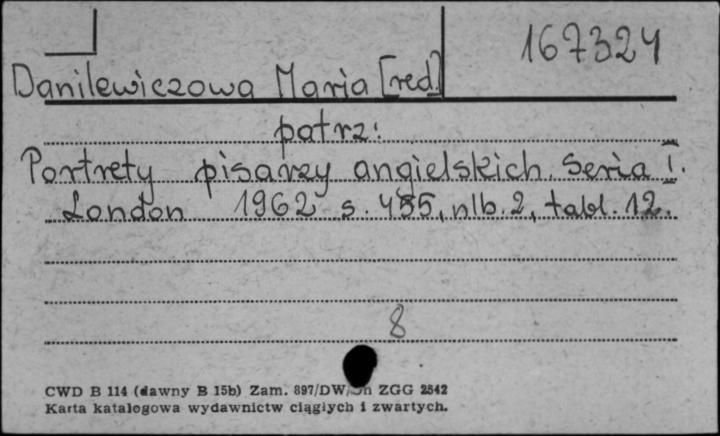 167324
Danilewiczowa Maria [red.]
patrz:
Portrety pisarzy angielskich. Seria I.
London 1962 s. 455, nlb. 2, tabl. 12.
8
CWD B 114 (dawny B 15b) Zam. 897/DW/ ZGG 2842
Karta katalogowa wydawnictw ciągłych i zwartych.